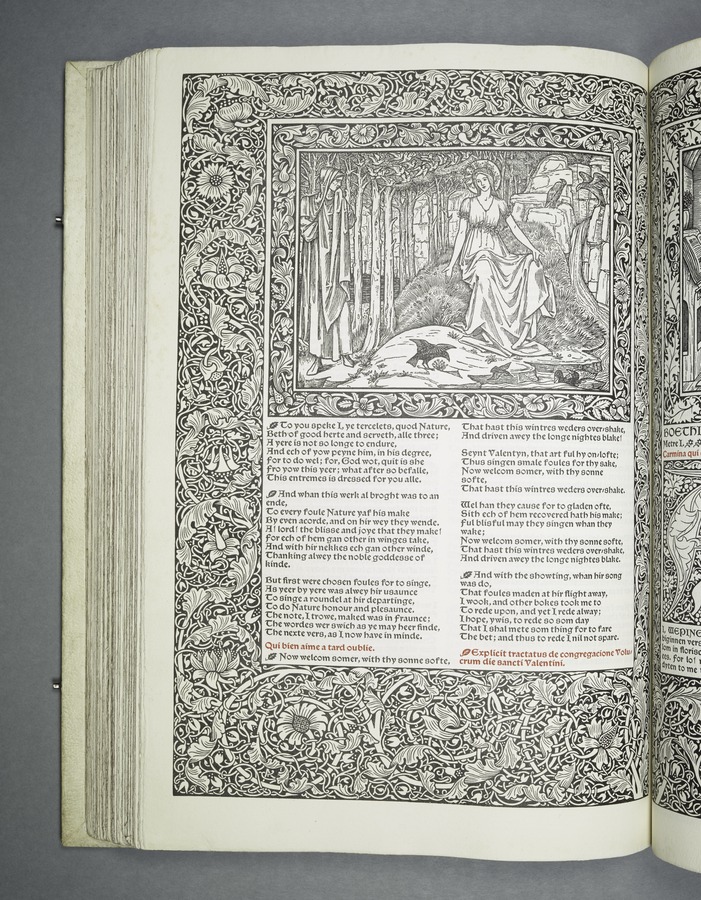 To you speke I, ye tercelets, quod Nature,
Beth of good herte and serveth, alle three;
A yere is not so longe to endure,
And ech of yow peyne him, in his degree,
For to do wel; for, God wot, quit is she
Fro yow this yeer; what after so befalle,
This entremes is dressed for you alle.
And whan this werk al broght was to an
ende,
To every foule Nature yaf his make
By even acorde, and on hir wey they wende.
A! lord! the blisse and joye that they make!
For ech of hem gan other in winges take,
And with hir nekkes ech gan other winde,
Thanking alwey the noble goddesse of
kinde.
But first were chosen foules for to singe,
As yeer by yere was alwey hir usaunce
To singe a roundel at hir departinge,
To do Nature honour and plesaunce.
The note, I trowe, maked was in Fraunce;
The wordes wer swich as ye may heer finde,
The nexte vers, as I now have in minde.
Qui bien aime a tard oublie.
Now welcom somer, with thy sonne softe,
That hast this wintres weders over-shake,
And driven awey the longe nightes blake!
Seynt Valentyn, that art ful hy on-lofte;
Thus singen smale foules for thy sake,
Now welcom somer, with thy sonne
softe,
That hast this wintres weders over-shake.
Wel han they cause for to gladen ofte,
Sith ech of hem recovered hath his make;
Ful blisful may they singen whan they
wake;
Now welcom somer, with thy sonne softe,
That hast this wintres weders over-shake,
And driven awey the longe nightes blake.
And with the showting, whan hir song
was do,
That foules maden at hir flight away,
I wook, and other bokes took me to
To rede upon, and yet I rede alway;
I hope, ywis, to rede so som day
That I shal mete som thing for to fare
The bet; and thus to rede I nil not spare.
Explicit tractatus de congregacione Volu-
crum die sancti Valentini.
BOETHI
Metre I.
Carmina qui